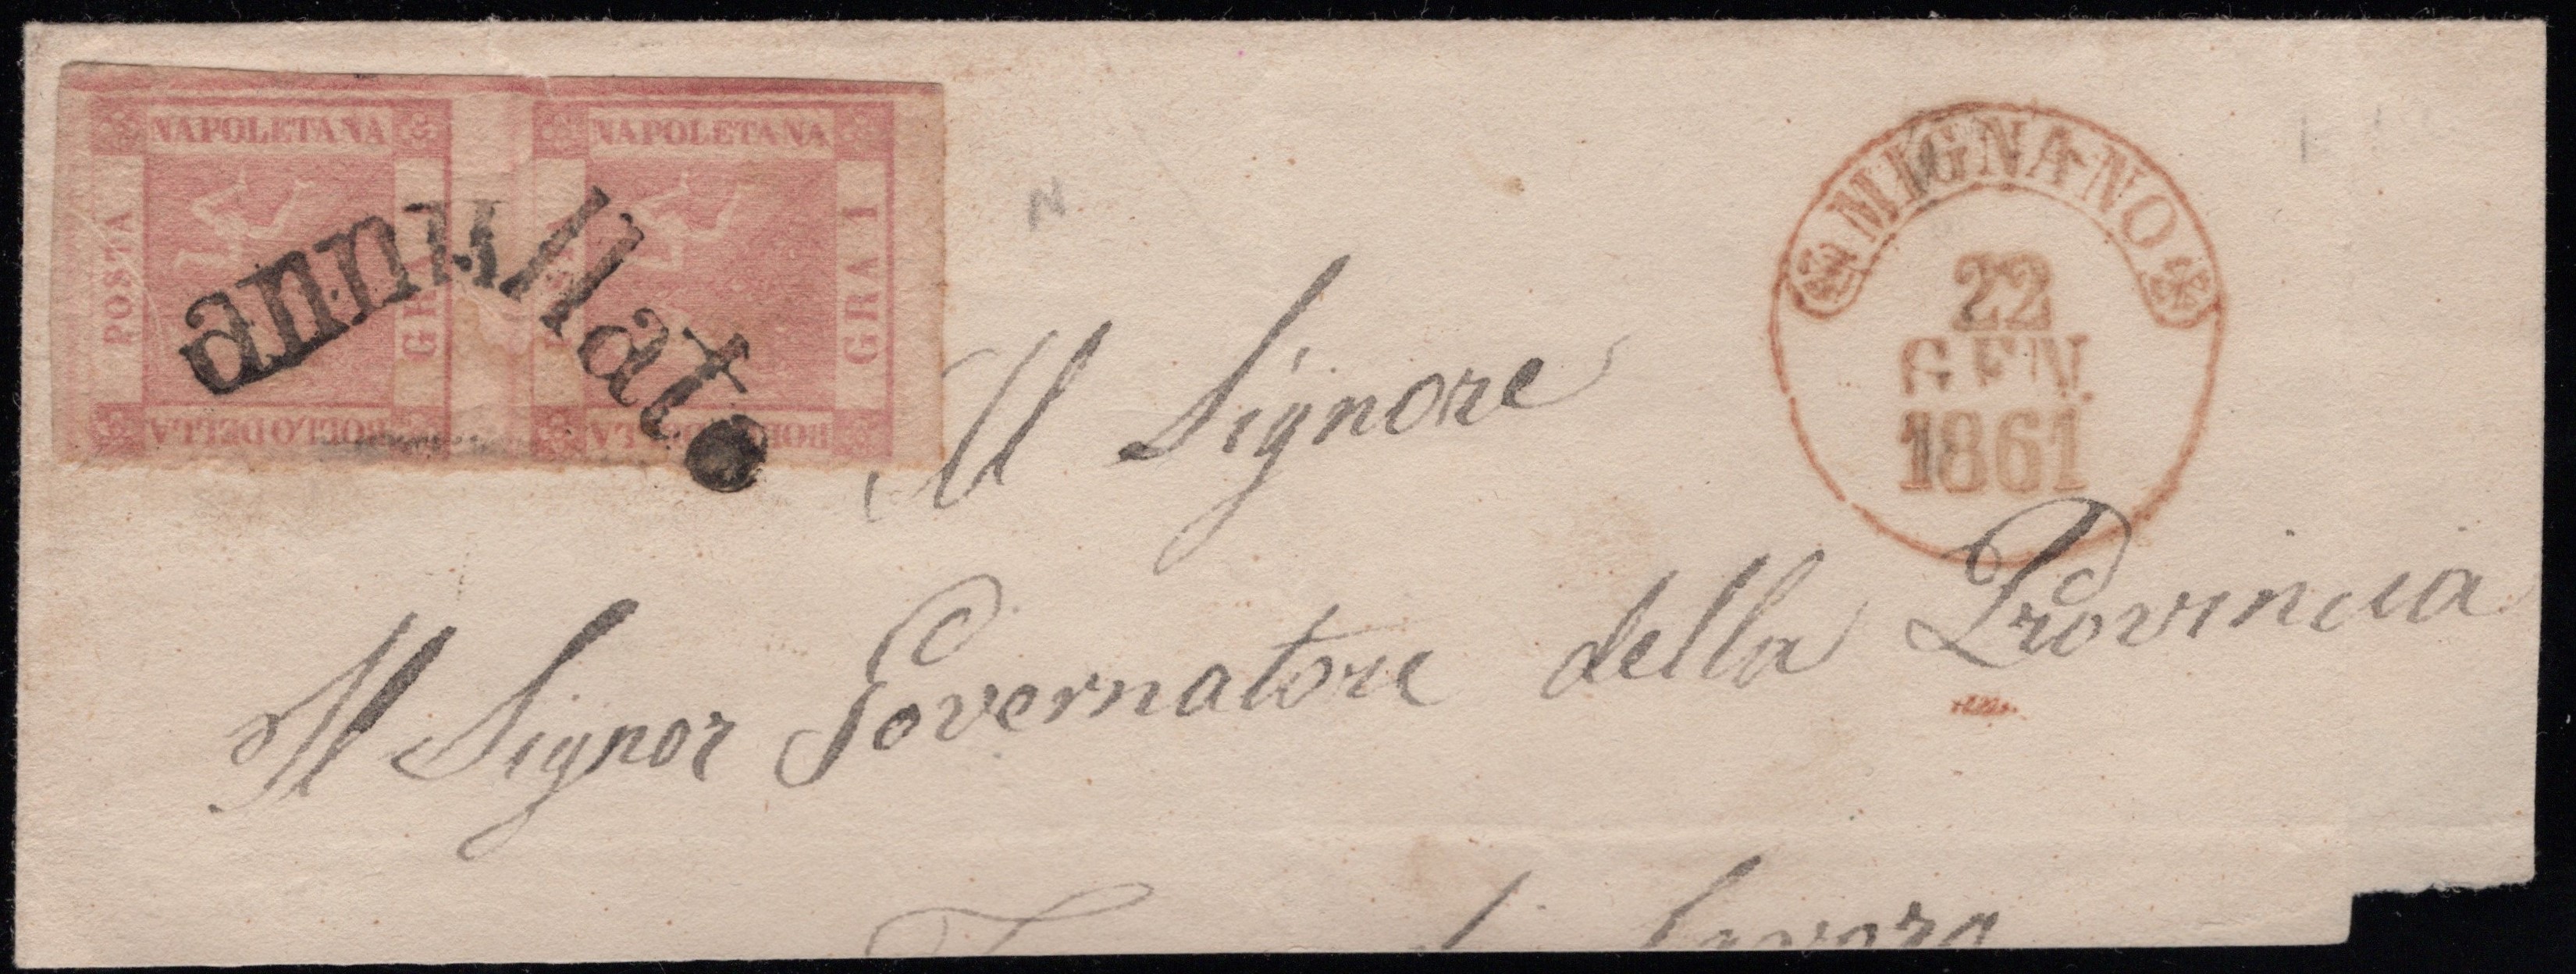 NAPOLETANA
POSTA
GRA
BOLLO DELLA
NAPOLETANA
GRA 1
annullato
MIGNANO
22
GEN.
1861
Al Signore
Il Signor Governatore della Provincia
di Lavoro